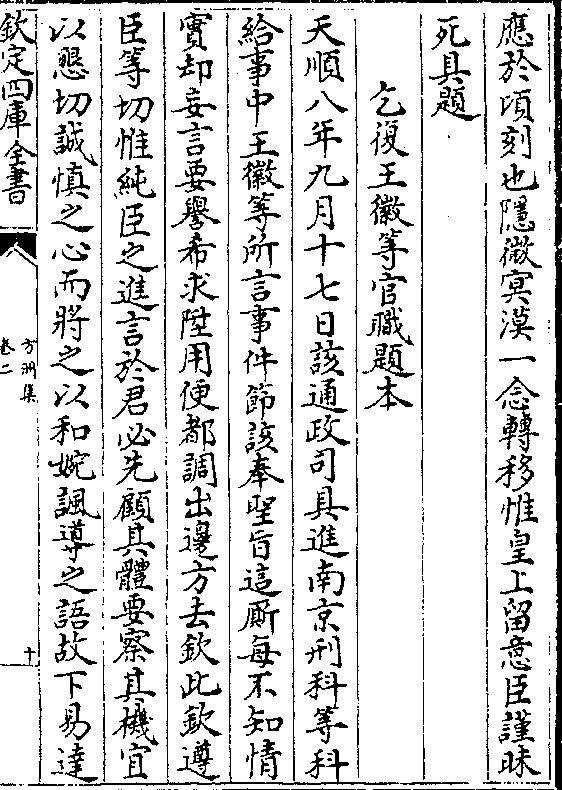 應於頃刻也隱微冥漠一念轉移惟皇上留意臣謹昧
死具題
乞復王徽等官職題本
天順八年九月十七日該通政司具進南京刑科等科
給事中王徽等所言事件節該奉聖旨這厮每不知情
實却妄言要譽希求陞用便都調出邊方去欽此欽遵
臣等切惟純臣之進言於君必先顧其體要察其機宜
以懇切誠慎之心而將之以和婉諷導之語故下易達
欽定四庫全書
方洲集
卷二
十